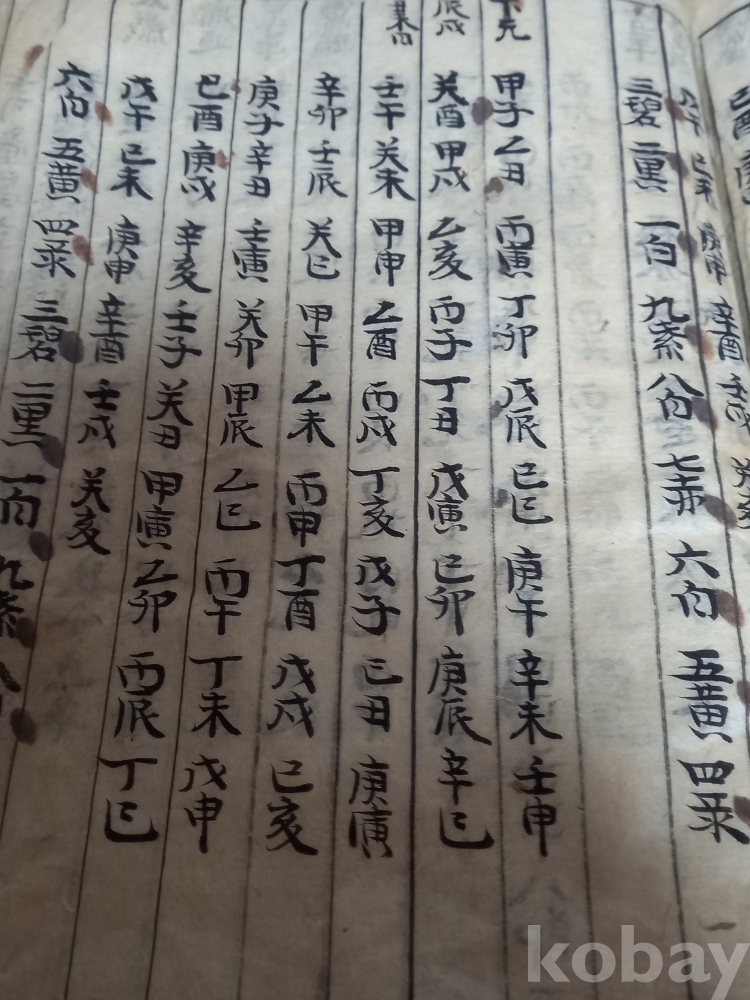 己酉
午 己未 庚申 辛酉 壬戌 癸亥
三碧 二黑 一白 九紫 八白 七赤 六白 五黃 四彔
下元
甲子 乙丑 丙寅 丁卯 戊辰 己巳 庚午 辛未 壬申
辰戌
癸酉 甲戌 乙亥 丙子 丁丑 戊寅 己卯 庚辰 辛巳
壬午 癸未 甲申 乙酉 丙戌 丁亥 戊子 己丑 庚寅
辛卯 壬辰 癸巳 甲午 乙未 丙申 丁酉 戊戌 己亥
庚子 辛丑 壬寅 癸卯 甲辰 乙巳 丙午 丁未 戊申
己酉 庚戌 辛亥 壬子 癸丑 甲寅 乙卯 丙辰 丁巳
戊午 己未 庚申 辛酉 壬戌 癸亥
六白 五黃 四彔 三碧 二黑 一白 九紫 八
kobay